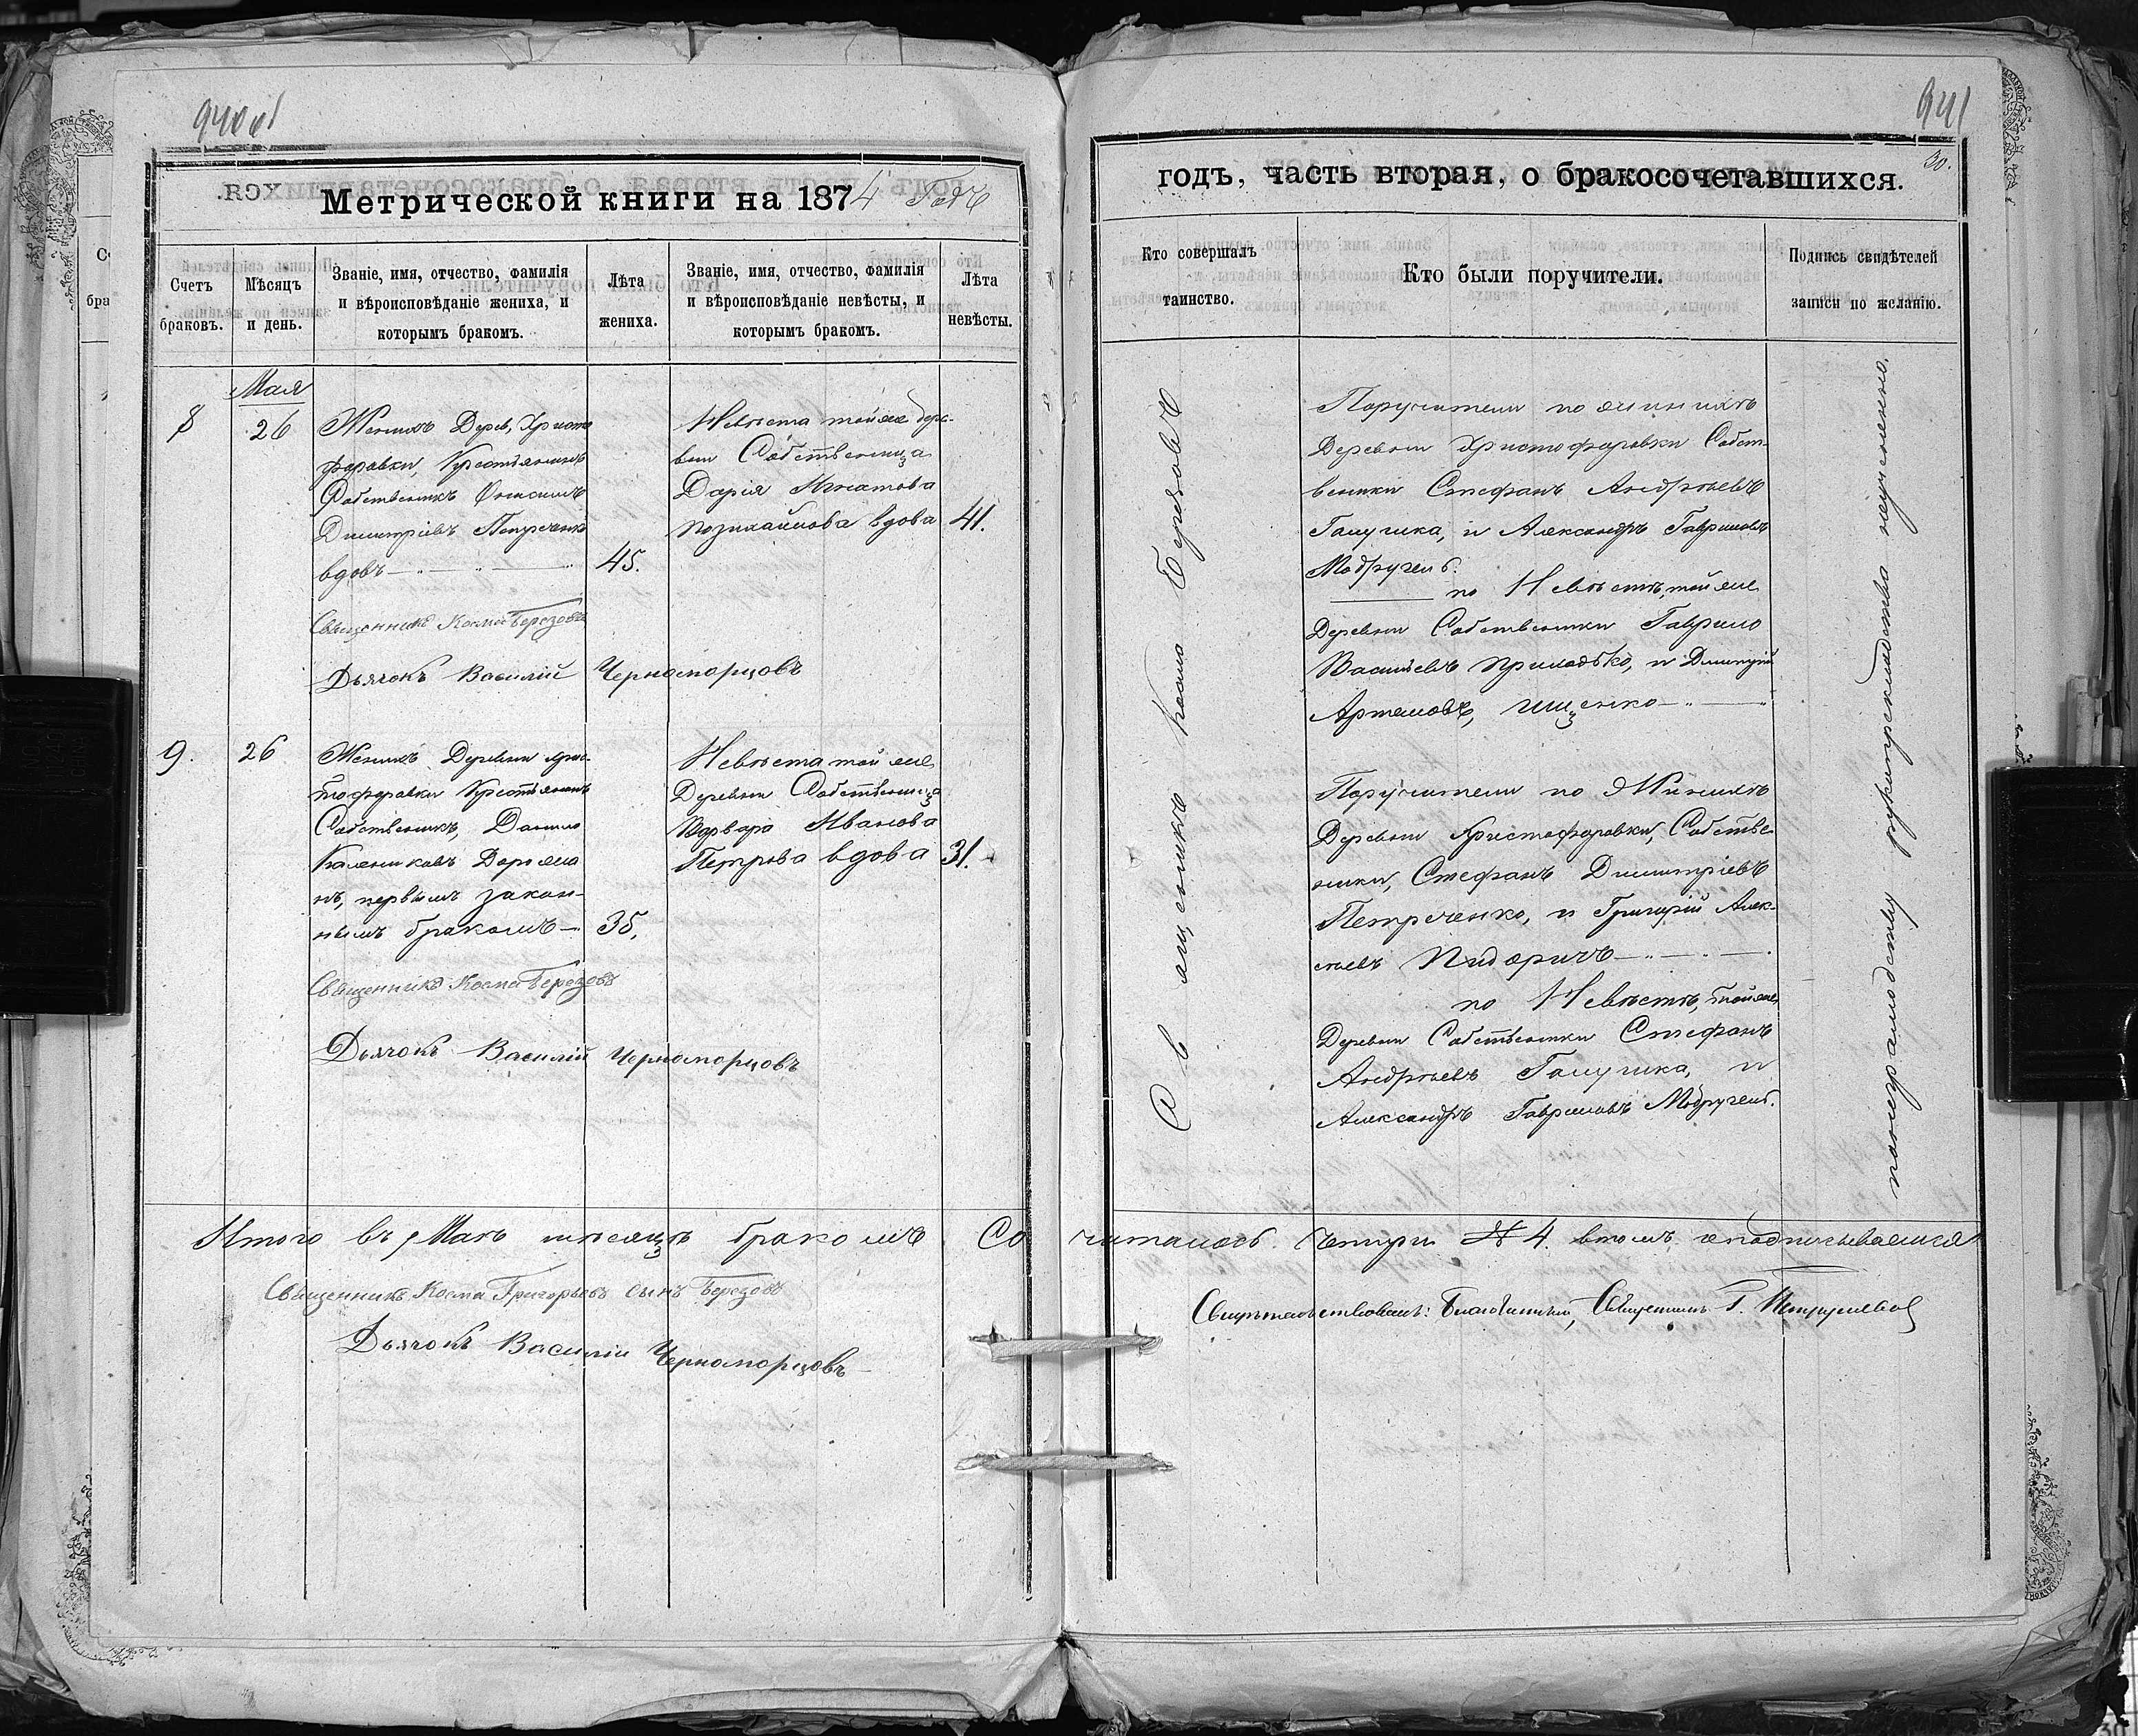 940 об
Метрической книги на 1874 Годъ
Счетъ браковъ.
Мѣсяцъ и день.
Званіе, имя, отчество, фамилія
и вѣроисповѣданіе жениха, и
которымъ бракомъ.
Лѣта
жениха.
Званіе, имя, отчество, фамилія
и вѣроисповѣданіе невѣсты, и
которымъ бракомъ.
Лѣта
невѣсты.
Мая
8
26
Женихъ Дерев, Христо
форовки, Крестьянинъ
Собственникъ
Димитріевъ Петреченко
вдовъ
45.
Невѣста той же дере-
вни Собственница
Дарія
вдова
41.
Священникъ Косма Березовъ
Дьячокъ Василій Черноморцовъ
9.
26
Женихъ Деревни Хрис-
тофоровки Крестьянинъ
Собственникъ, Данило
Калениковъ Дорожко
нъ, первымъ закон-
нымъ бракомъ
35.
Невѣста той же
Деревни Собственница
Варвара Иванова
Петрова вдова
31.
Священникъ Косма Березовъ
Дьячокъ Василій Черноморцовъ
Итого въ Маѣ мѣсяцѣ бракомъ Со
Священникъ Косма Григорьевъ сынъ Березовъ
Дьячокъ Василій Черноморцовъ
941
30.
годъ, часть вторая, о бракосочетавшихся.
Кто совершалъ
таинство.
Кто были поручители.
Подпись свидѣтелей
записи по желанію.
Священникъ Косма Березовъ
Поручители по женихѣ
Деревни Христофоровки Собст-
венники Стефанъ Андрѣевъ
Галушка, и Александръ Гавриловъ
по Невѣстѣ, той же
Деревни Собственники Гаврило
Васильевъ Приладько, и Димитрій
Артемовъ, Ищенко
Поручители по Женихѣ
Деревни Христофоровки, Собстве-
нники, Стефанъ Димитріевъ
Петреченко, и Григорій Алек-
сѣевъ Пидоричъ
по Невѣстѣ, той же
Деревни Собственники Стефанъ
Андрѣевъ Галушка, и
Александръ Гавриловъ
рукоприкладства неучинено.
читалось четыри № 4. втомъ и подписываемся
Свидѣтельствовалъ: Благочинный, Священникъ Г.